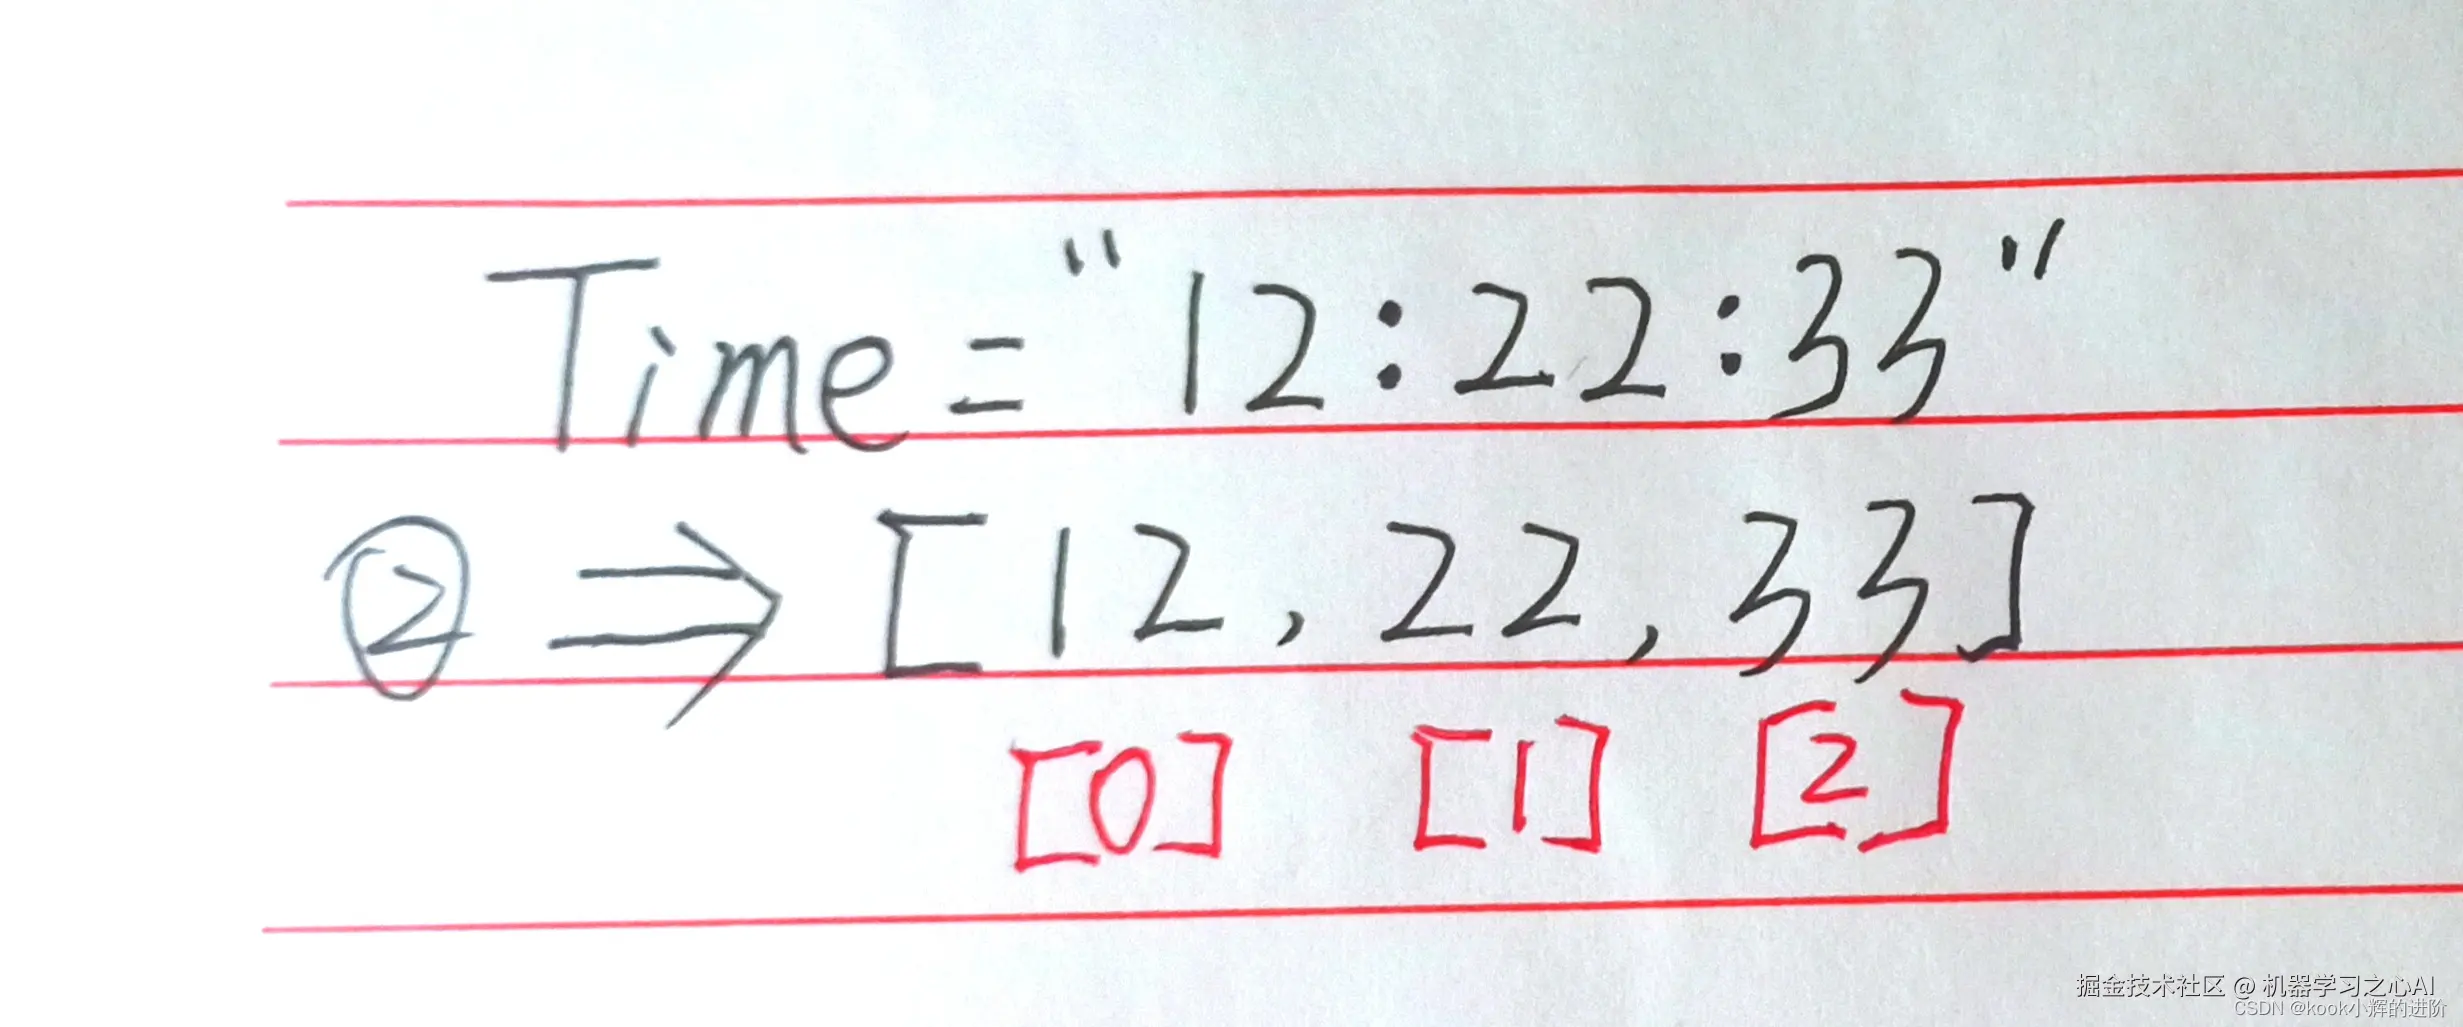 Time = "12:22:33"
② ⇒ [12, 22, 33]
[0] [1] [2]
掘金技术社区 @ 机器学习之心AI
CSDN @kook小辉的进阶